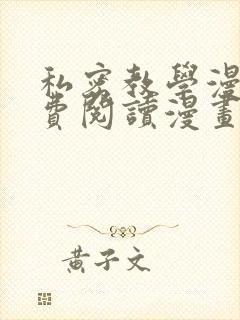 私密教學漫
費閱讀漫畫
黃子文